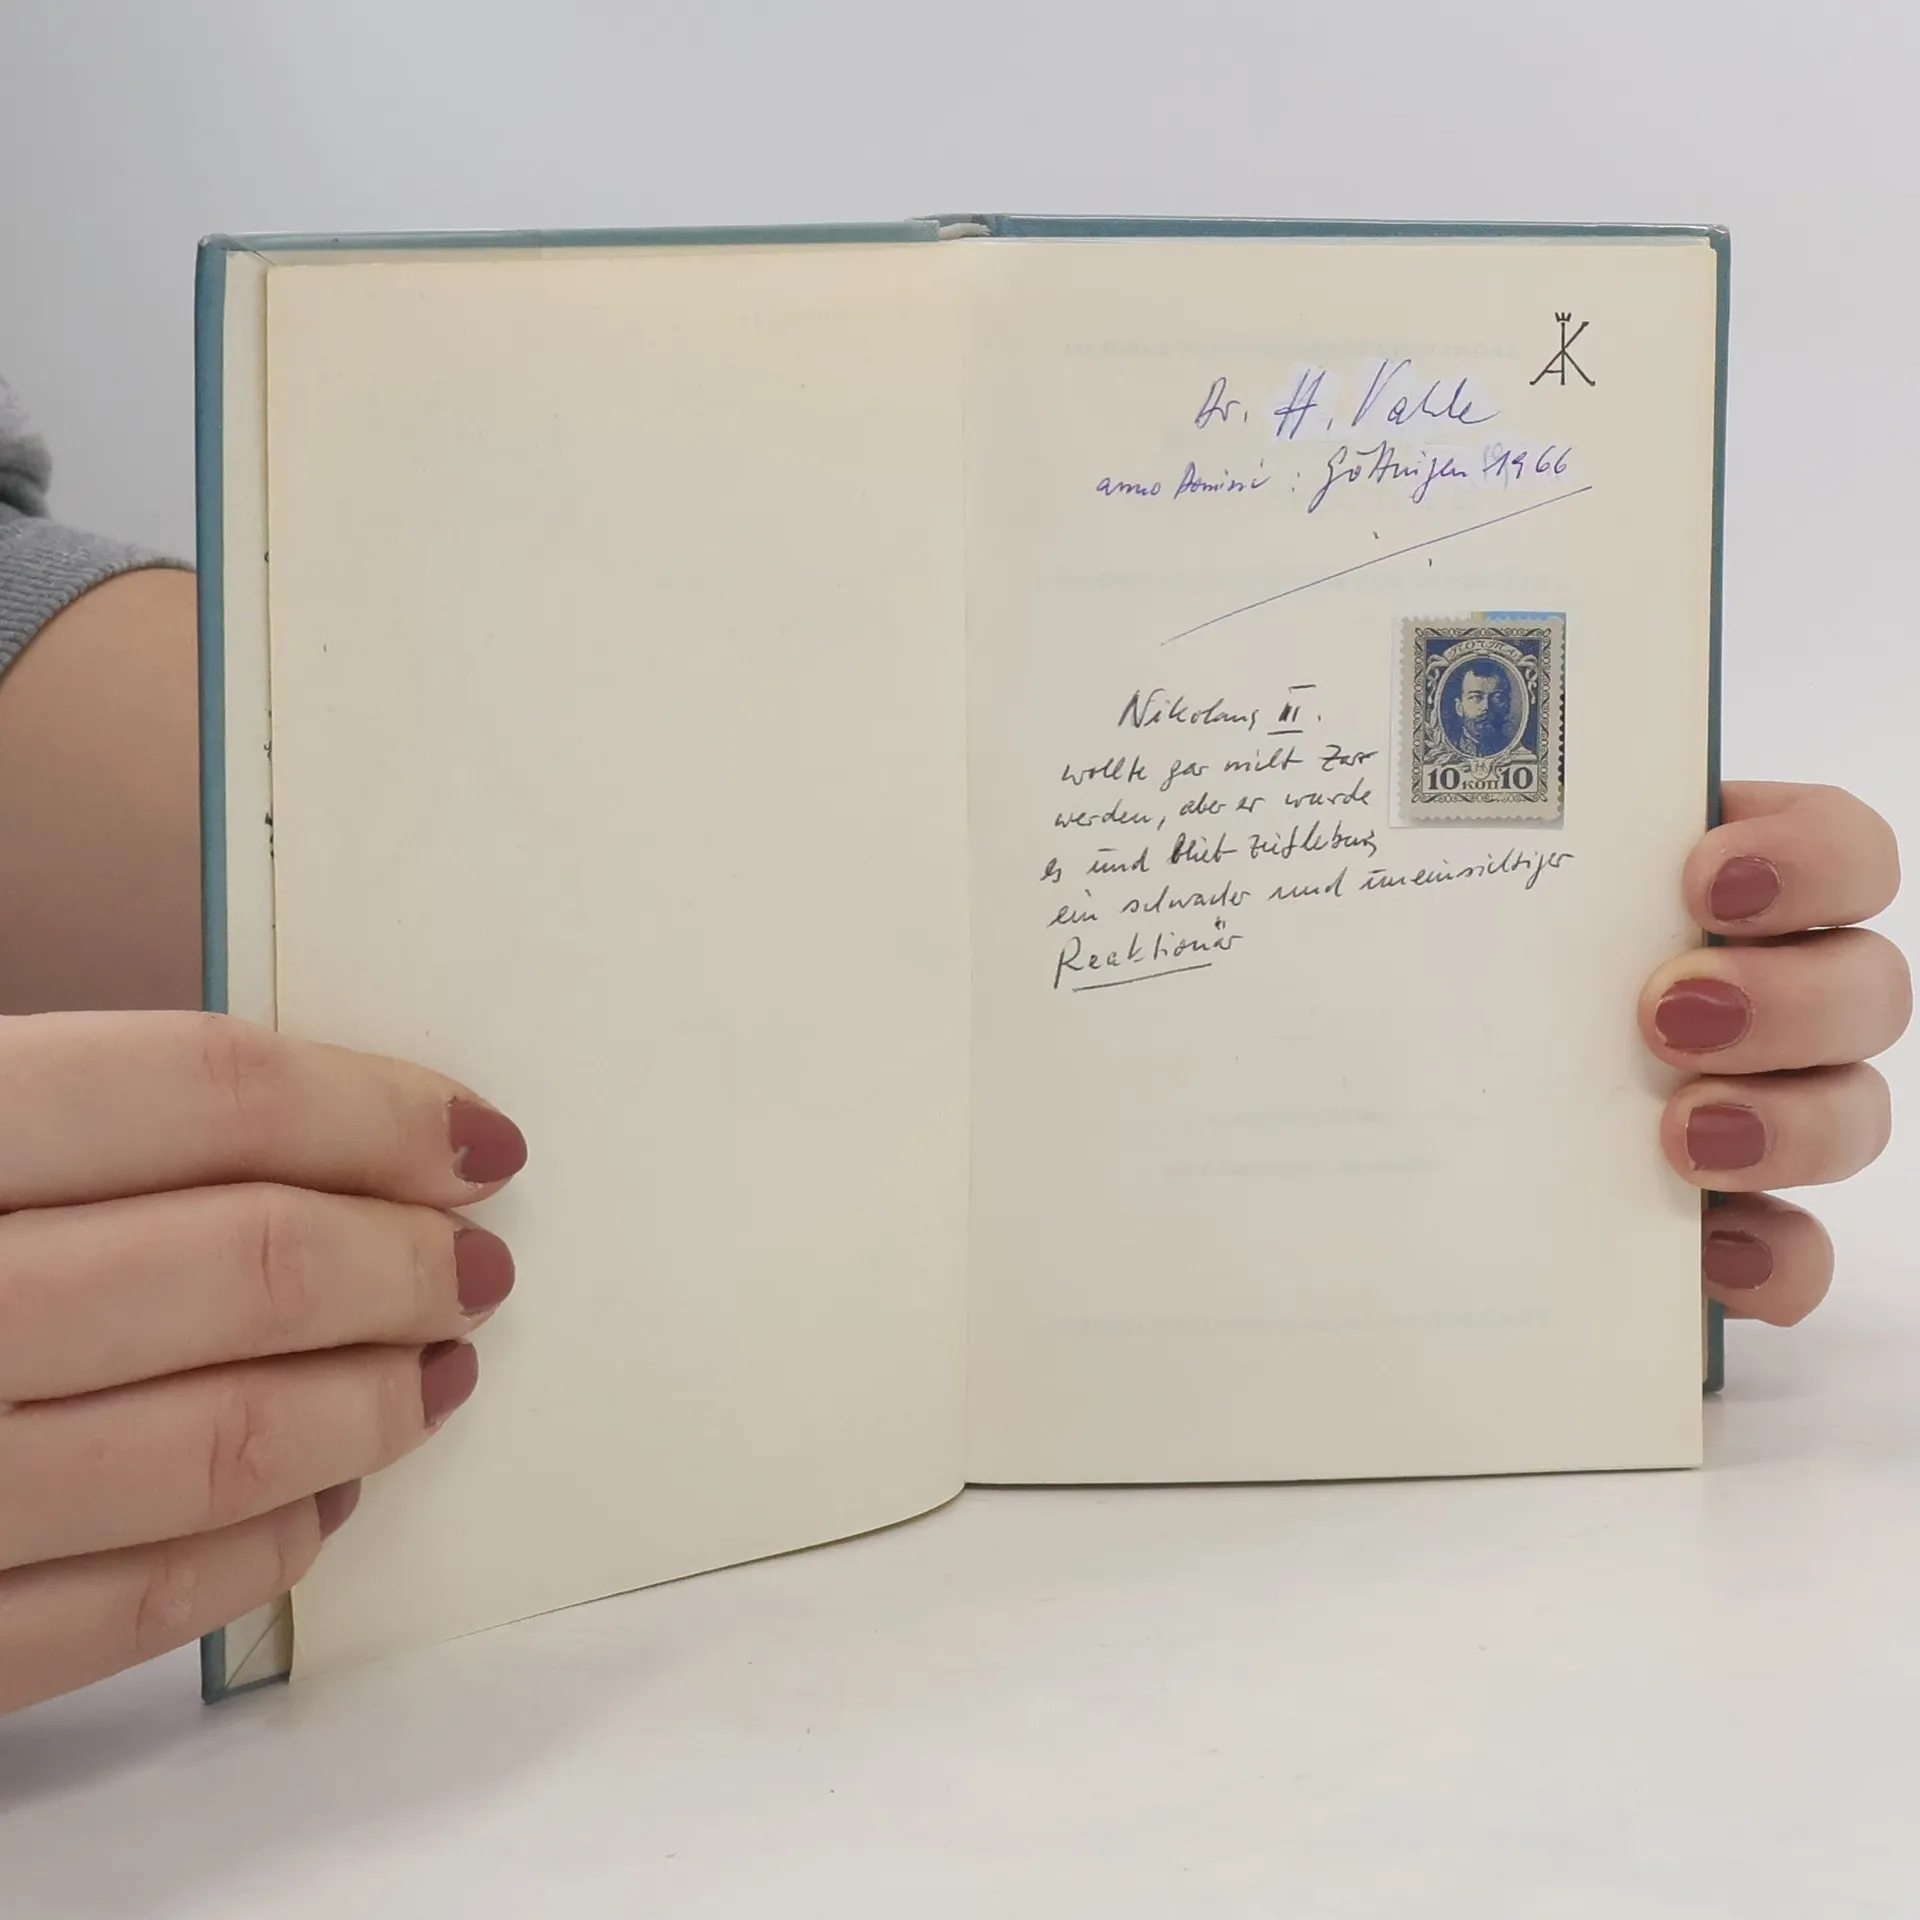 AK
Dr. H. Vahle
anno Domini : Göttingen 1966
Nikolaus II.
wollte gar nicht Zar
werden, aber er wurde
es und blieb zeitlebens
ein schwacher und uneinsichtiger
Reaktionär
ПОЧТА
10 КОП 10